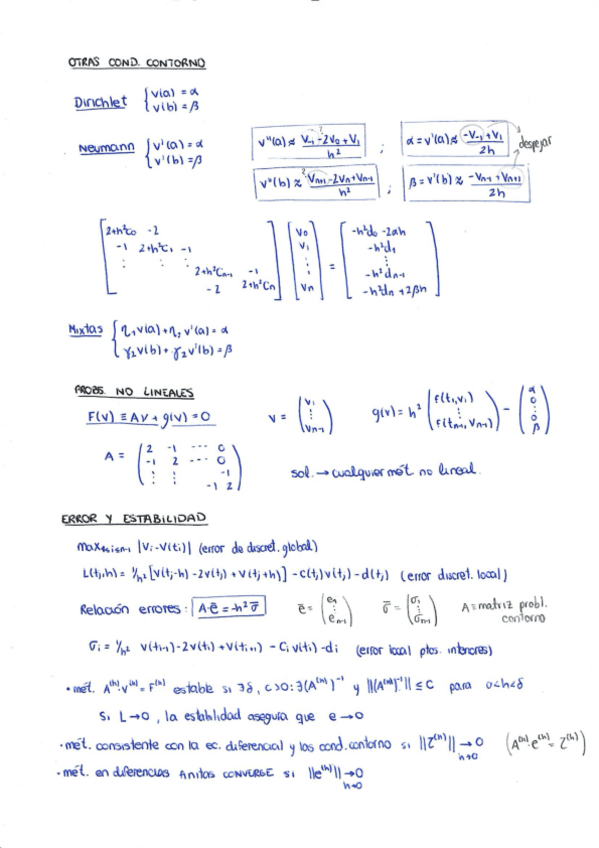 OTRAS COND. CONTORNO
Dirichlet { v(a) = α
v(b) = β
Neumann { v'(a) = α
v'(b) = β
v''(a) ≈ (V₋₁ - 2V₀ + V₁)/h² ; α = v'(a) ≈ (-V₋₁ + V₁)/2h
despejar
v''(b) ≈ (Vₙ₊₁ - 2Vₙ + Vₙ₋₁)/h² ; β = v'(b) ≈ (-Vₙ₋₁ + Vₙ₊₁)/2h
[ 2+h²c₀ -2 ] [ V₀ ] = [ -h²d₀ - 2αh ]
-1 2+h²c₁ -1 V₁ -h²d₁
⋮ ⋮ ⋮ ⋮ ⋮
2+h²cₙ₋₁ -1 -h²dₙ₋₁
-2 2+h²cₙ Vₙ -h²dₙ + 2βh
Mixtas { η₁v(a) + η₂ v'(a) = α
γ₂v(b) + γ₂v'(b) = β
PROBS. NO LINEALES
F(v) ≡ Av + g(v) = 0 v = (V₁ ⋮ Vₙ₋₁) g(v) = h² (f(t₁,v₁) ⋮ f(tₙ₋₁,vₙ₋₁)) - (α 0 ⋮ 0 β)
A = ( 2 -1 ... 0
-1 2 ... 0
⋮ ⋮ -1
-1 2 )
sol. → cualquier mét. no lineal.
ERROR Y ESTABILIDAD
max |Vᵢ - V(tᵢ)| (error de discret. global)
L(tⱼ,h) = 1/h² [v(tⱼ-h) - 2v(tⱼ) + v(tⱼ+h)] - c(tⱼ)v(tⱼ) - d(tⱼ) (error discret. local)
Relación errores: A·ē = -h²σ̄ ē = (e₁ ⋮ eₙ₋₁) σ̄ = (σ₁ ⋮ σₙ₋₁) A = matriz probl. contorno
σᵢ = 1/h² v(tᵢ₋₁) - 2v(tᵢ) + v(tᵢ₊₁) - cᵢv(tᵢ) - dᵢ (error local ptos. interiores)
· mét. A⁽ʰ⁾·v⁽ʰ⁾ = F⁽ʰ⁾ estable si ∃δ, c>0: ∃(A⁽ʰ⁾)⁻¹ y ||(A⁽ʰ⁾)⁻¹|| ≤ C para 0<h<δ
Si L → 0, la estabilidad asegura que e → 0
· mét. consistente con la ec. diferencial y las cond. contorno si ||Z⁽ʰ⁾|| → 0 h→0 (A⁽ʰ⁾·e⁽ʰ⁾ = Z⁽ʰ⁾)
· mét. en diferencias finitas CONVERGE si ||e⁽ʰ⁾|| → 0 h→0